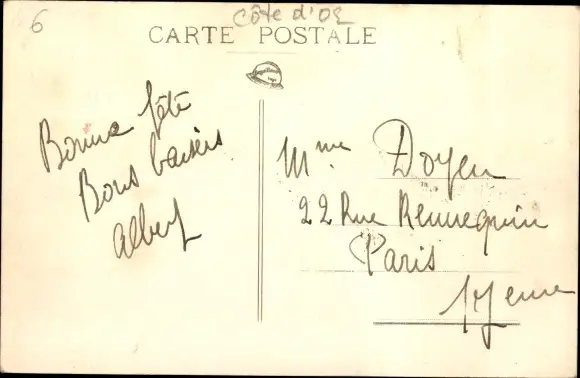 6
Côte d'Or
CARTE POSTALE
Bonne fête
Bons baisers
Albert
Mme Doyen
22 Rue Rennequin
Paris
17eme